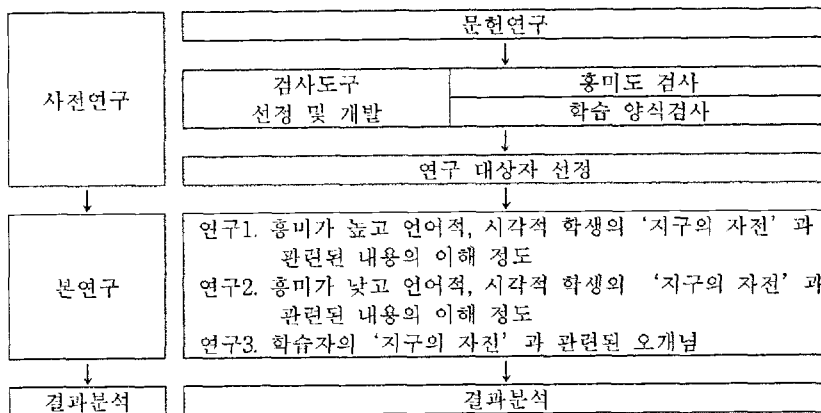 문헌연구
사전연구
검사도구
선정 및 개발
흥미도 검사
학습 양식검사
연구 대상자 선정
본연구
연구1. 흥미가 높고 언어적, 시각적 학생의 ‘지구의 자전’ 과
관련된 내용의 이해 정도
연구2. 흥미가 낮고 언어적, 시각적 학생의 ‘지구의 자전’ 과
관련된 내용의 이해 정도
연구3. 학습자의 ‘지구의 자전’ 과 관련된 오개념
결과분석
결과분석